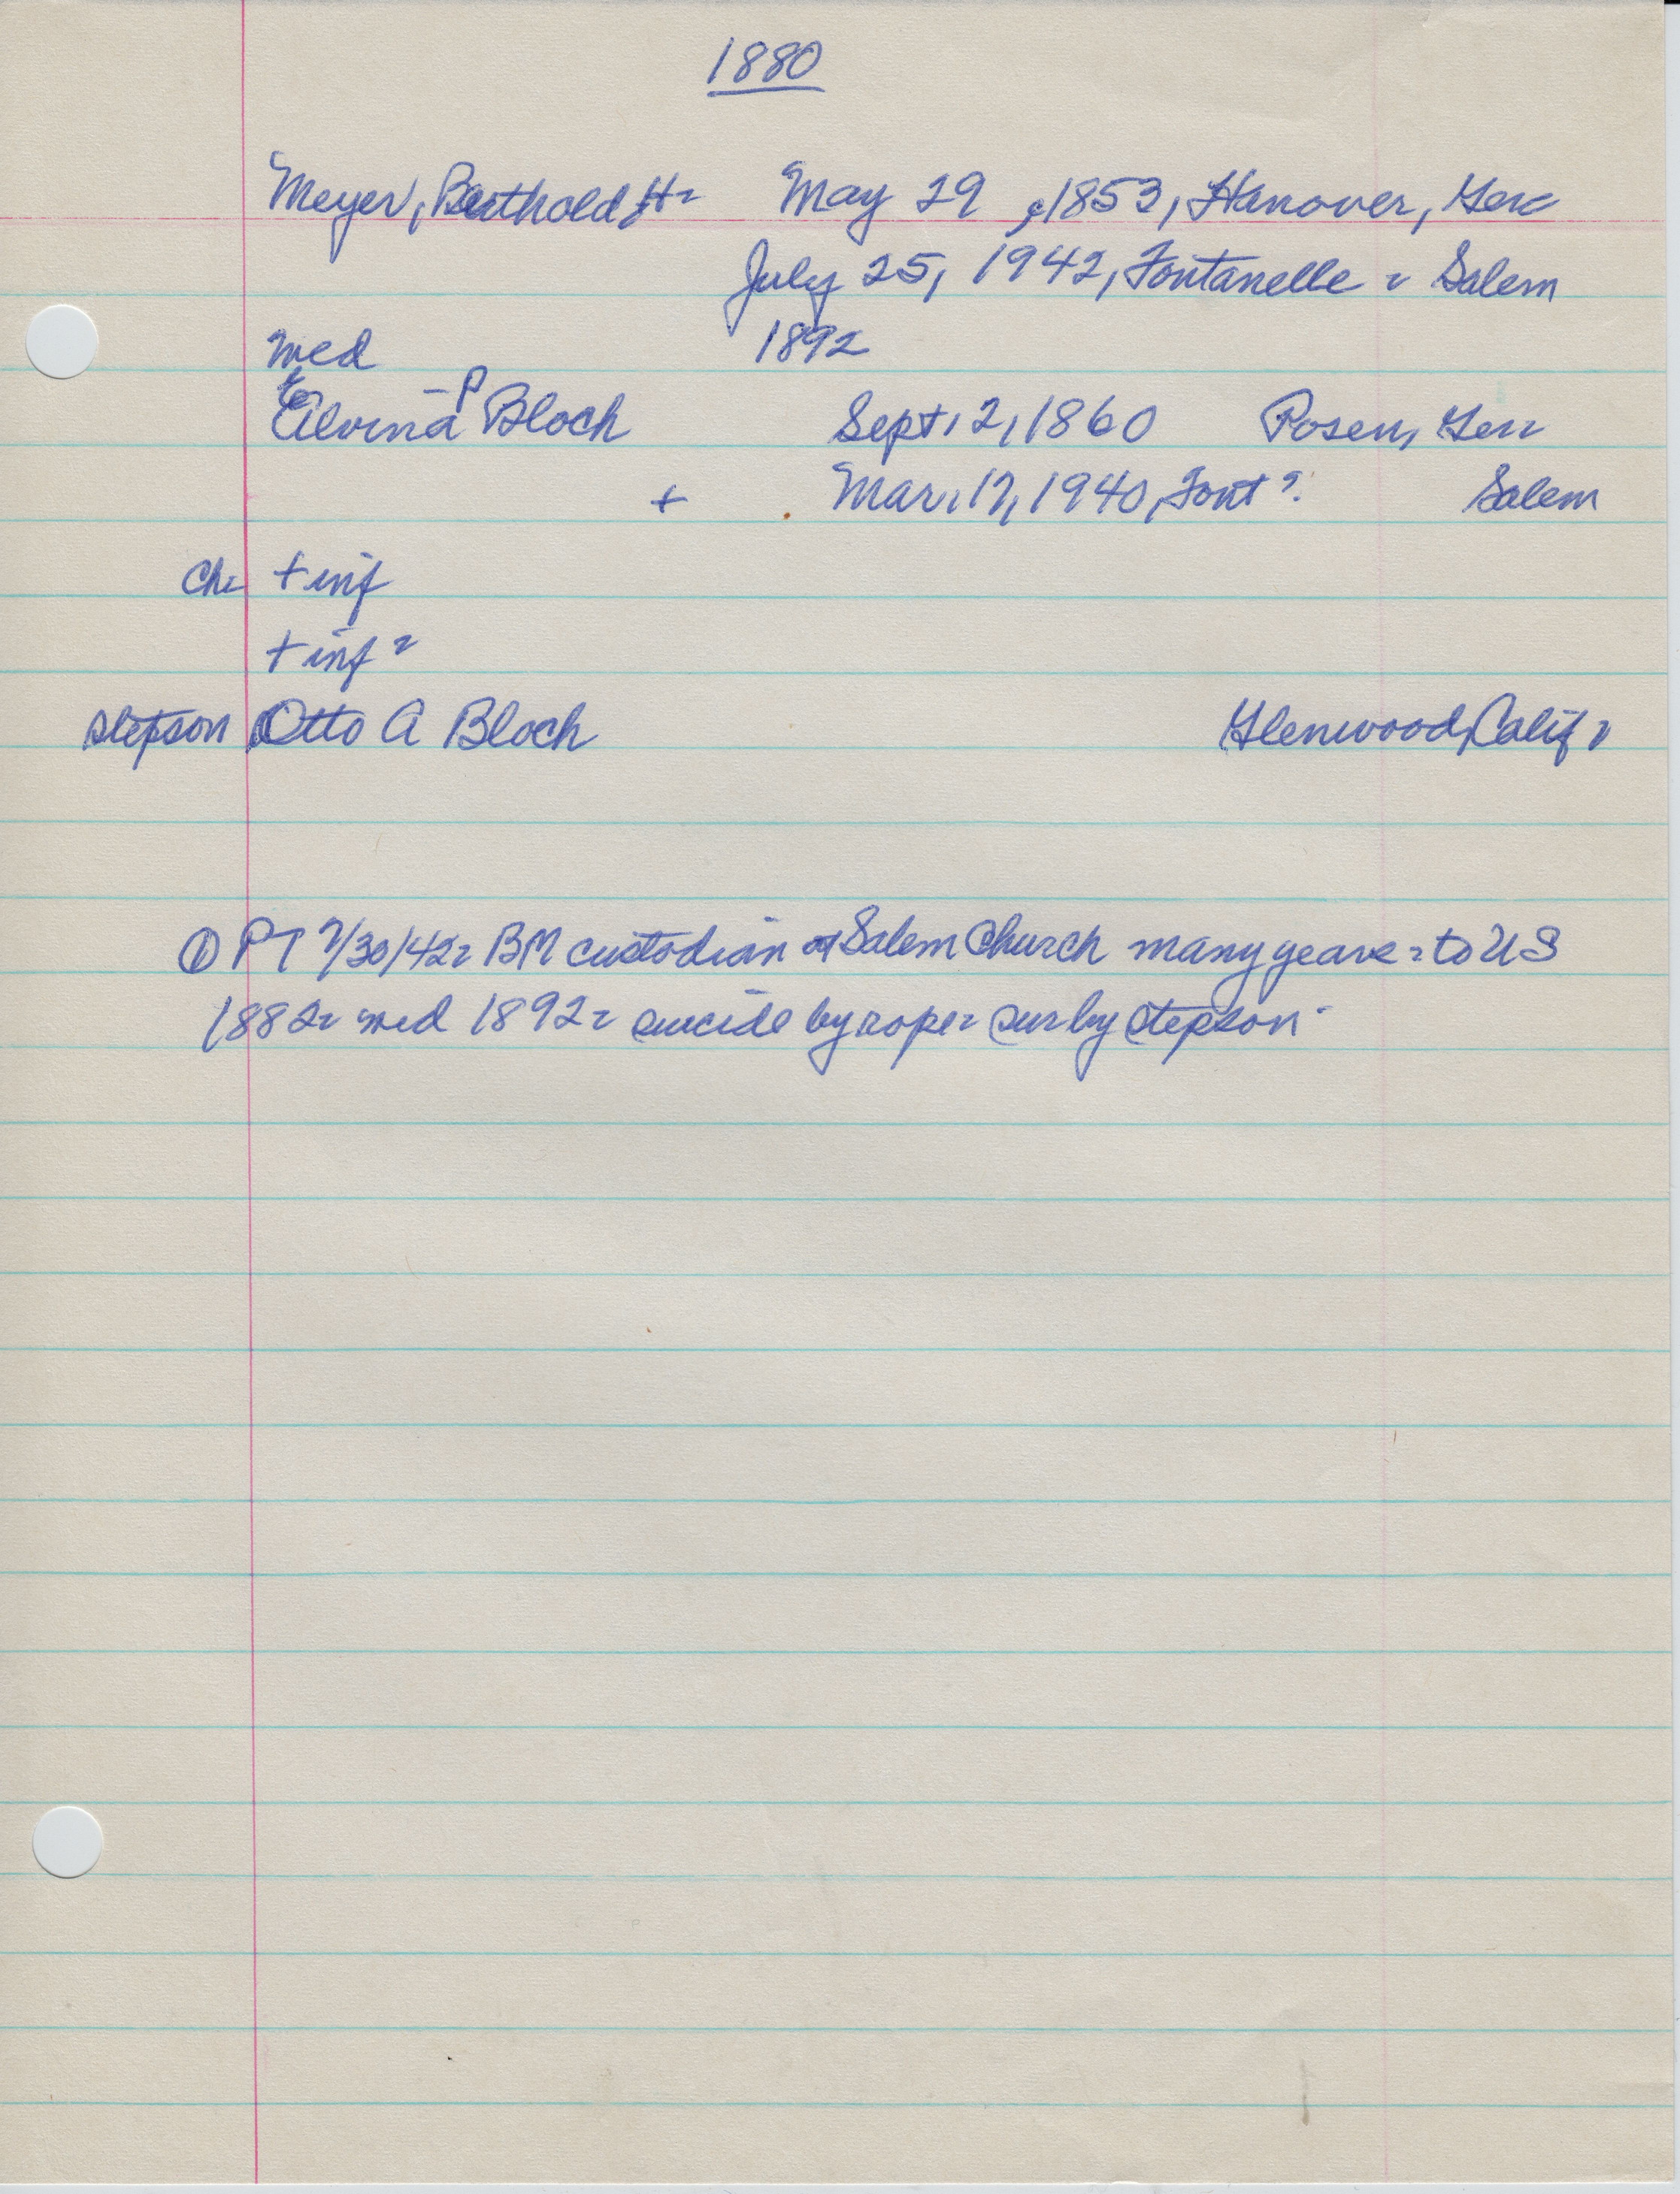 1880
Meyer, Berthold H- May 29, 1853, Hanover, Ger-
July 25, 1942, Fontanelle - Salem
med 1892
Elvina -P Bloch Sept. 2, 1860 Posen, Ger-
+ Mar. 17, 1940, Font ?. Salem
Ch- + inf
+ inf -
stepson Otto A Bloch Glenwood, Calif,
① PT 7/30/42- BM custodian of Salem Church many years - to US
1882- med 1892- suicide by rope- sur by stepson-